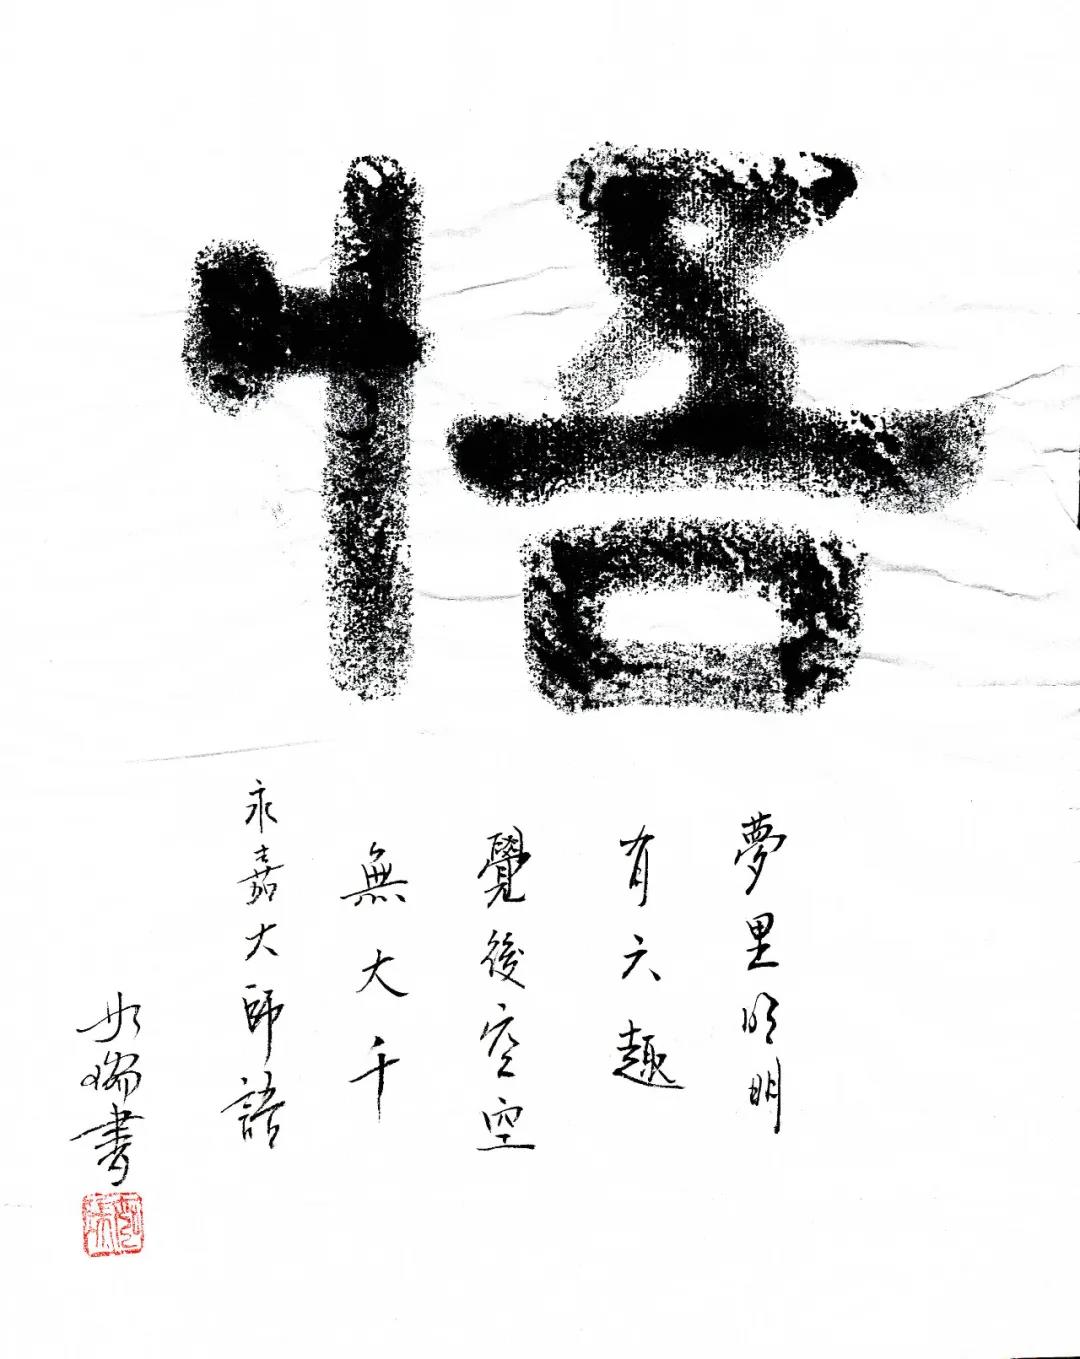 悟
夢里明明
有六趣
覺後空空
無大千
永嘉大師語
如瑞書